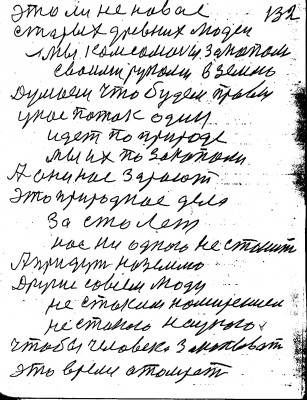 это ли не новое 132
старых древних людей
а мы комсомол их закопали
своими руками в землю
Думаем что будем правы
у нас поток один
идет по природе
мы их то закопали
А они нас зароют
это природное дело
За сто лет
нас ни одного не станет
А придут на землю
Другие совсем люди
не с таким
не с такого научного
чтобы человека закововат
это время отомрет